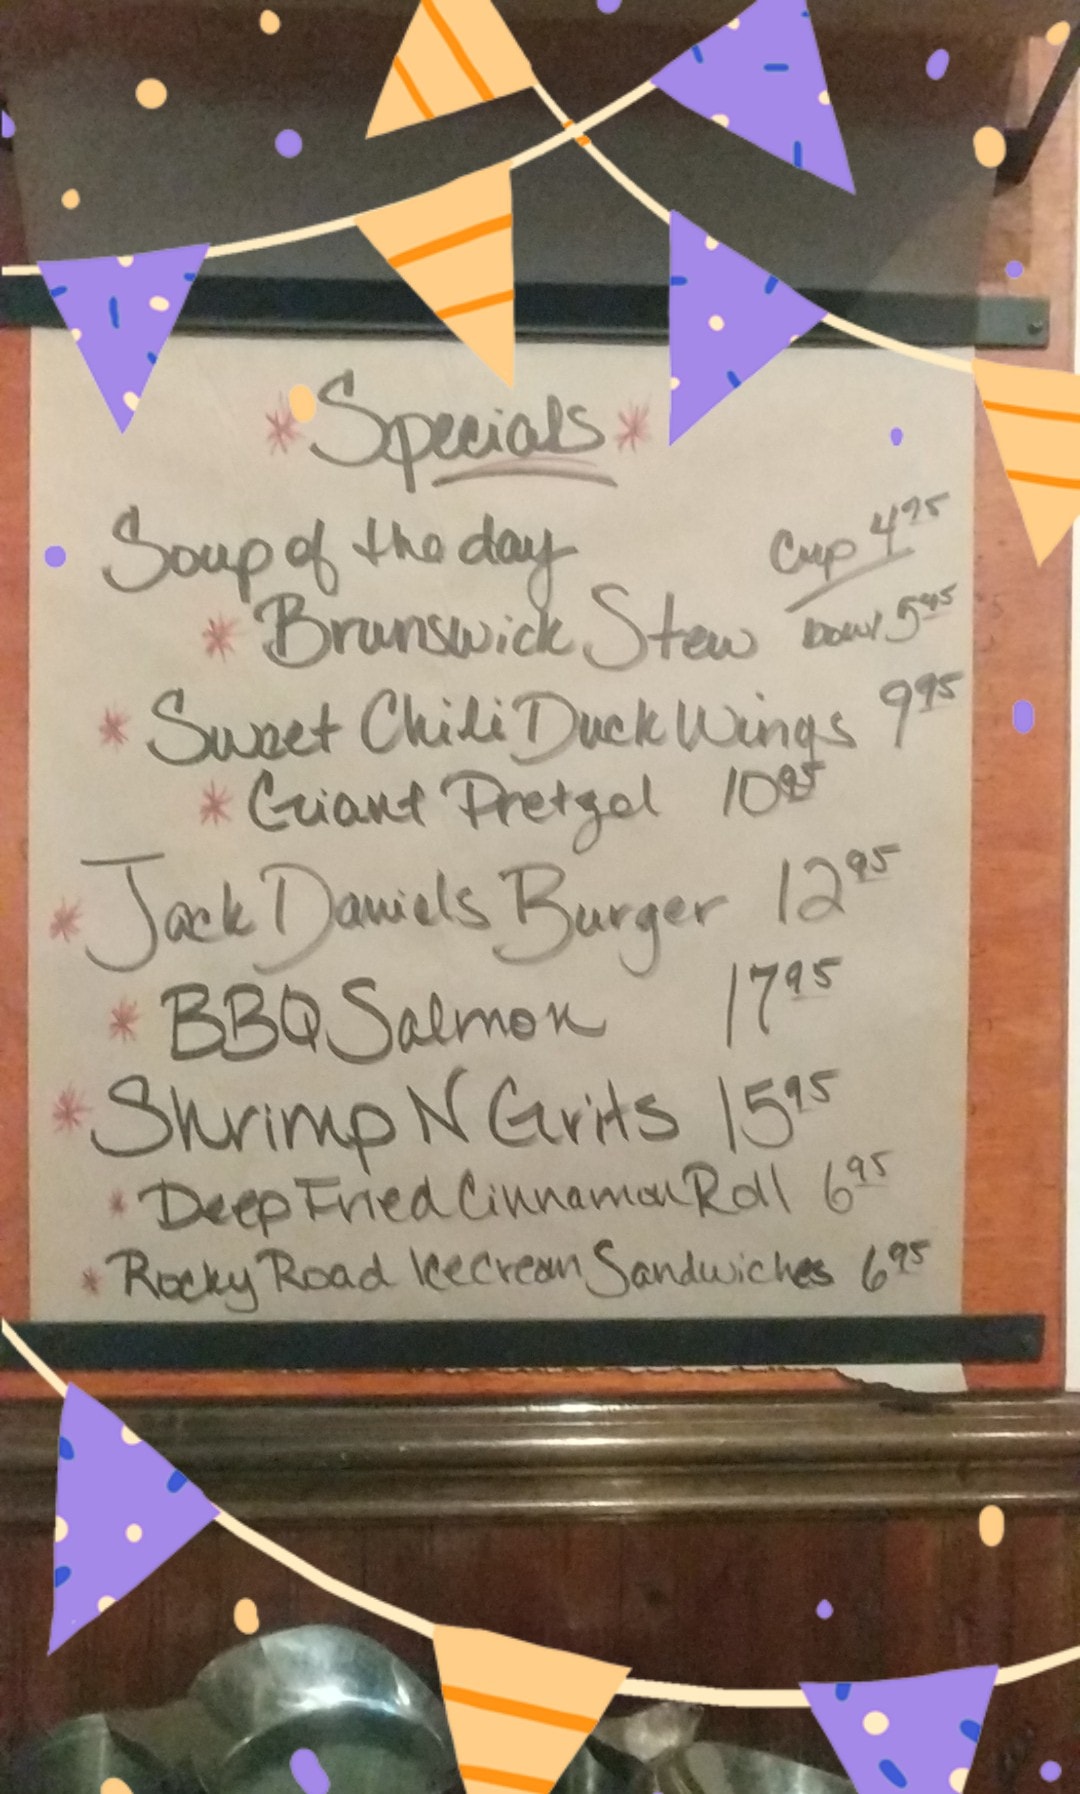 * Specials *
Soup of the day Cup 4.95
* Brunswick Stew bowl 5.95
* Sweet Chili Duck Wings 9.95
* Giant Pretzel 10.95
* Jack Daniels Burger 12.95
* BBQ Salmon 17.95
* Shrimp N Grits 15.95
* Deep Fried Cinnamon Roll 6.95
* Rocky Road Icecream Sandwiches 6.95